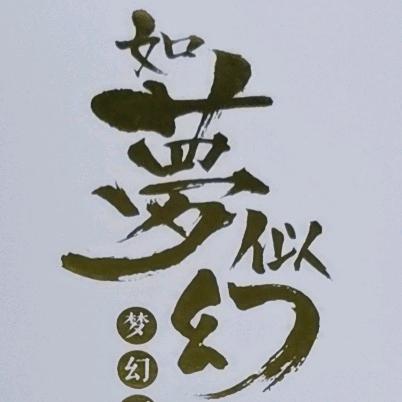 如夢似幻
梦幻